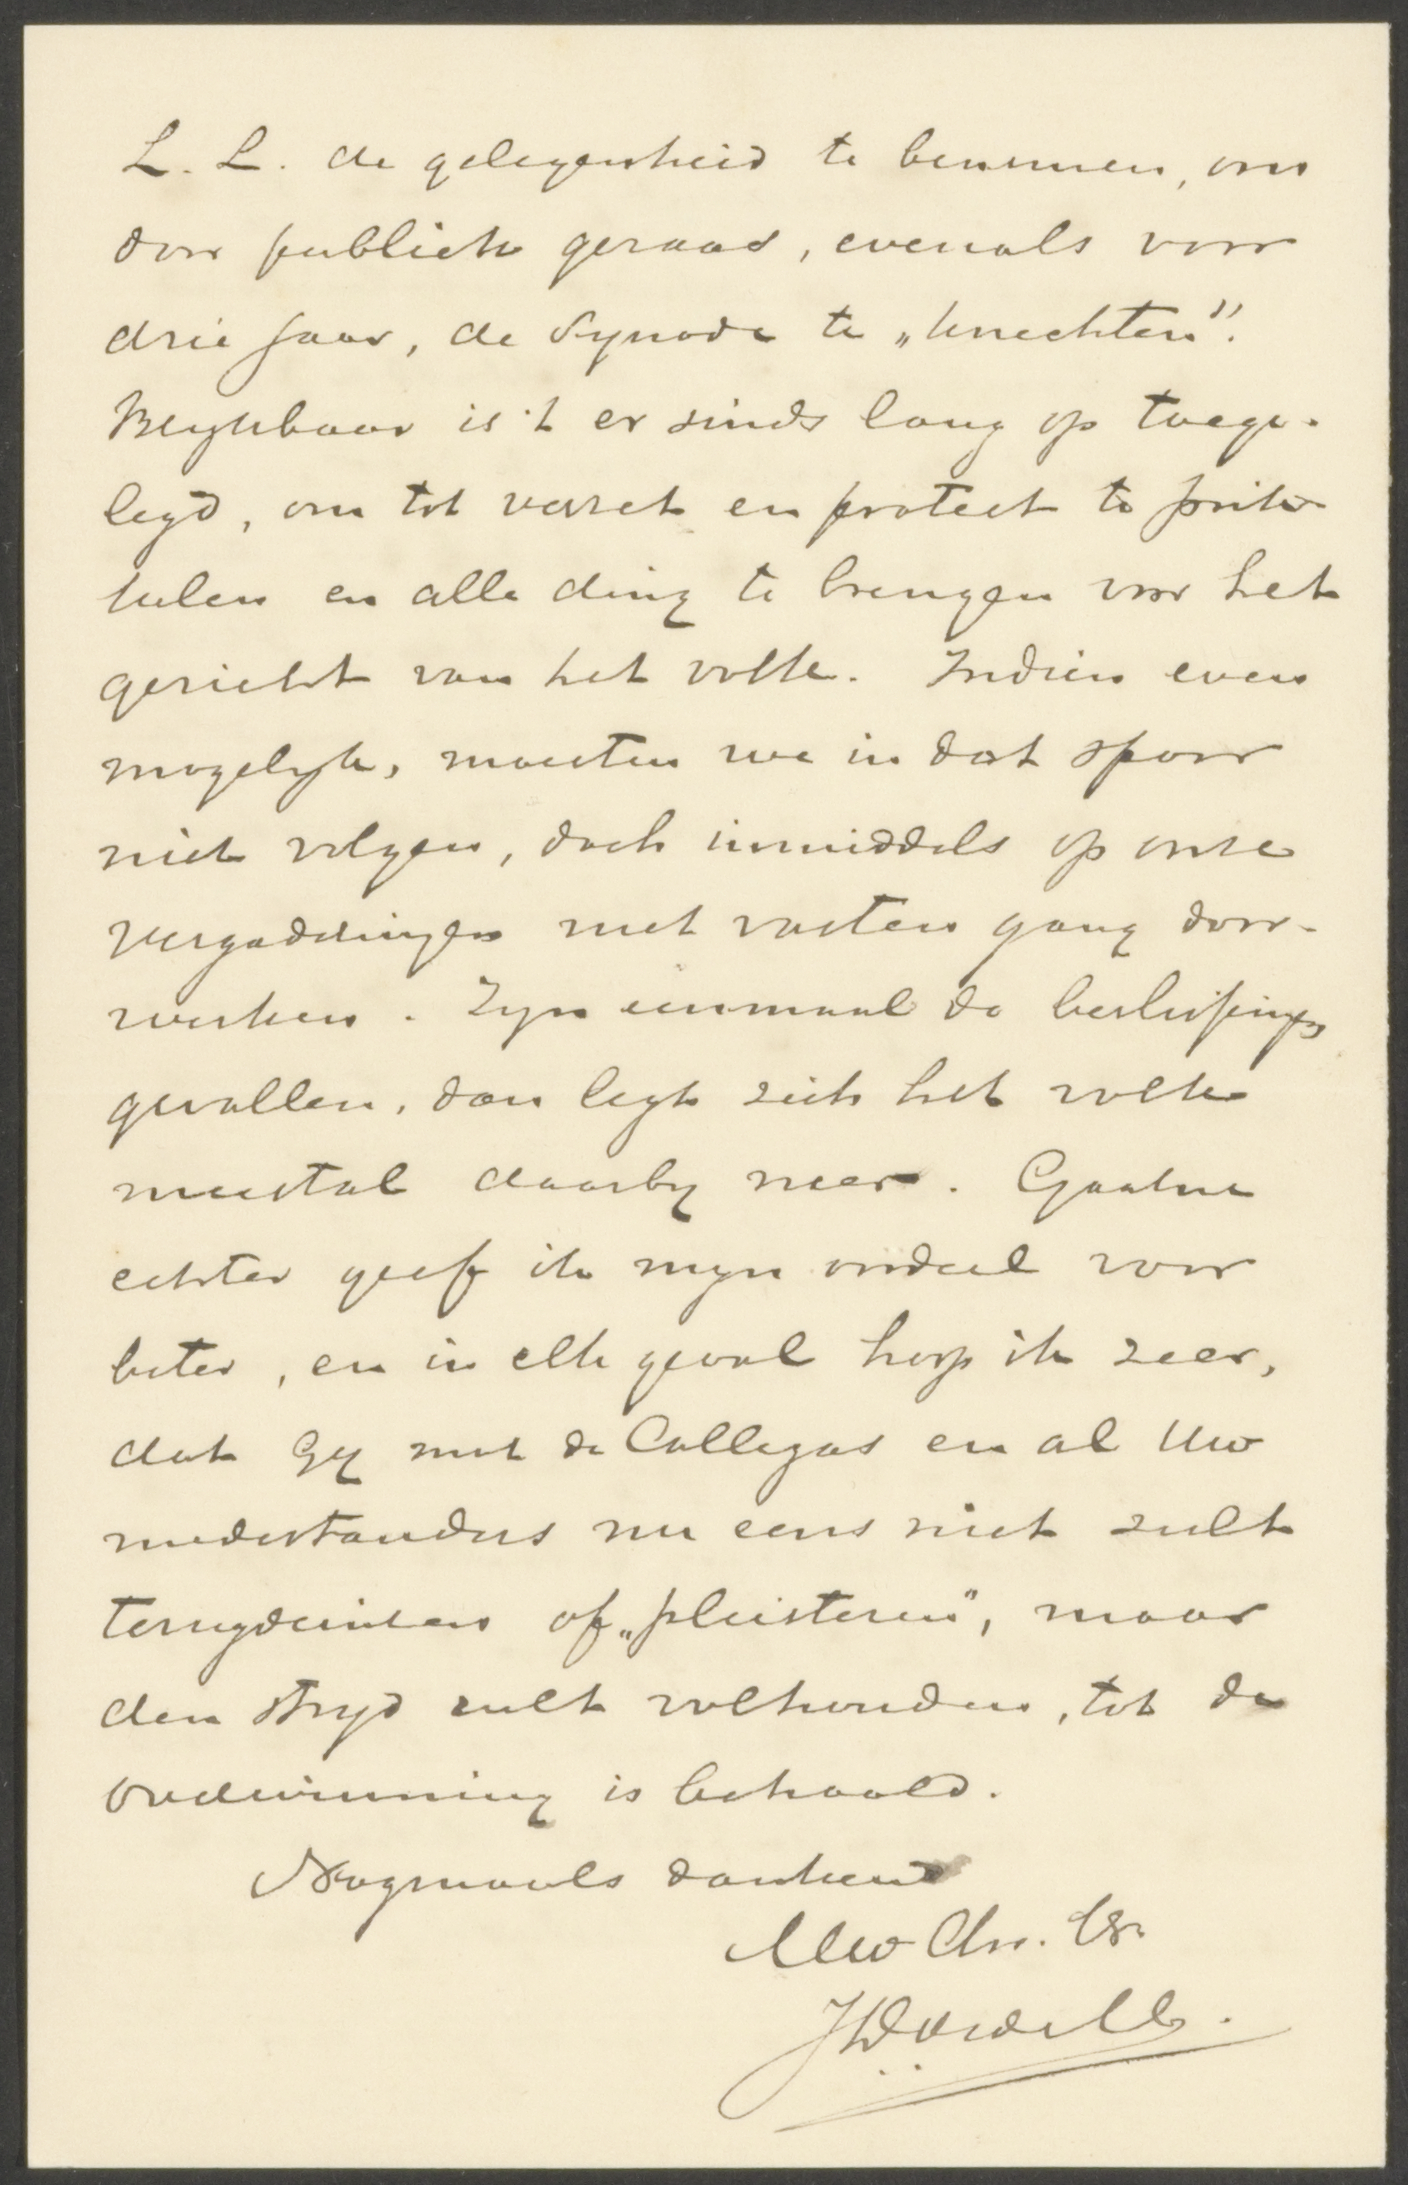 L. L. de gelegenheid te benemen, om
door publiek geraas, evenals voor
drie jaar, de Synode te „knechten".
Blykbaar is 't er sinds lang op toege-
legd, om tot verzet en protest te prik-
kelen en alle ding te brengen voor het
gericht van het volk. Indien even
mogelyk, moesten we in dat spoor
niet volgen, doch inmiddels op onze
vergaderingen met vasten gang door-
werken. Zyn eenmaal de beslissingen
gevallen, dan legt zich het volk
meestal daarby neer. Gaarne
echter geef ik myn oordeel voor
beter, en in elk geval hoop ik zeer,
dat Gy met de Collegas en al Uw
medestanders nu eens niet zult
terugdeinzen of „pleisteren", maar
den stryd zult volhouden, tot de
overwinning is behaald.
Nogmaals dankend
Uw Chr. Br.